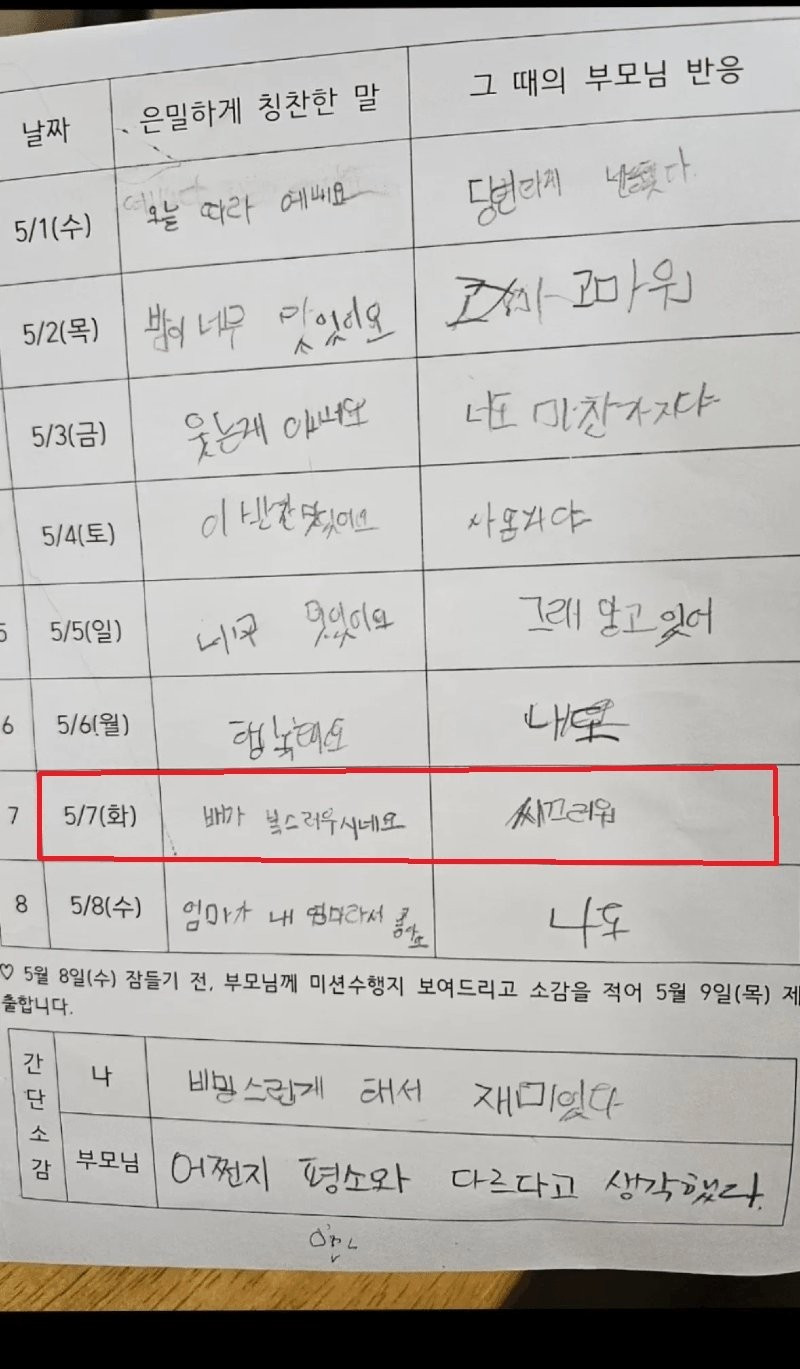 날짜 은밀하게 칭찬한 말 그 때의 부모님 반응
5/1(수) 오늘 따라 예뻐요
5/2(목) 밥이 너무 맛있어요 고마워
5/3(금) 웃는게 너도 마찬가지야
5/4(토) 이 반찬 맛있어요
5 5/5(일) 맛있어요 그래 알고 있어
6 5/6(월) 행복해요
7 5/7(화) 배가 복스러우시네요 씨끄러워
8 5/8(수) 엄마가 내 엄마라서 나도
♡ 5월 8일(수) 잠들기 전, 부모님께 미션수행지 보여드리고 소감을 적어 5월 9일(목) 제
출합니다.
간단소감
나 재미있다
부모님 어쩐지 평소와 다르다고 생각했다.